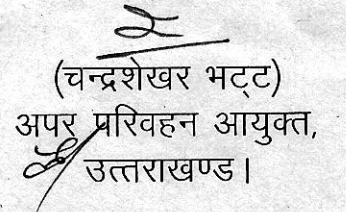 (चन्द्रशेखर भट्ट)
अपर परिवहन आयुक्त,
उत्तराखण्ड।